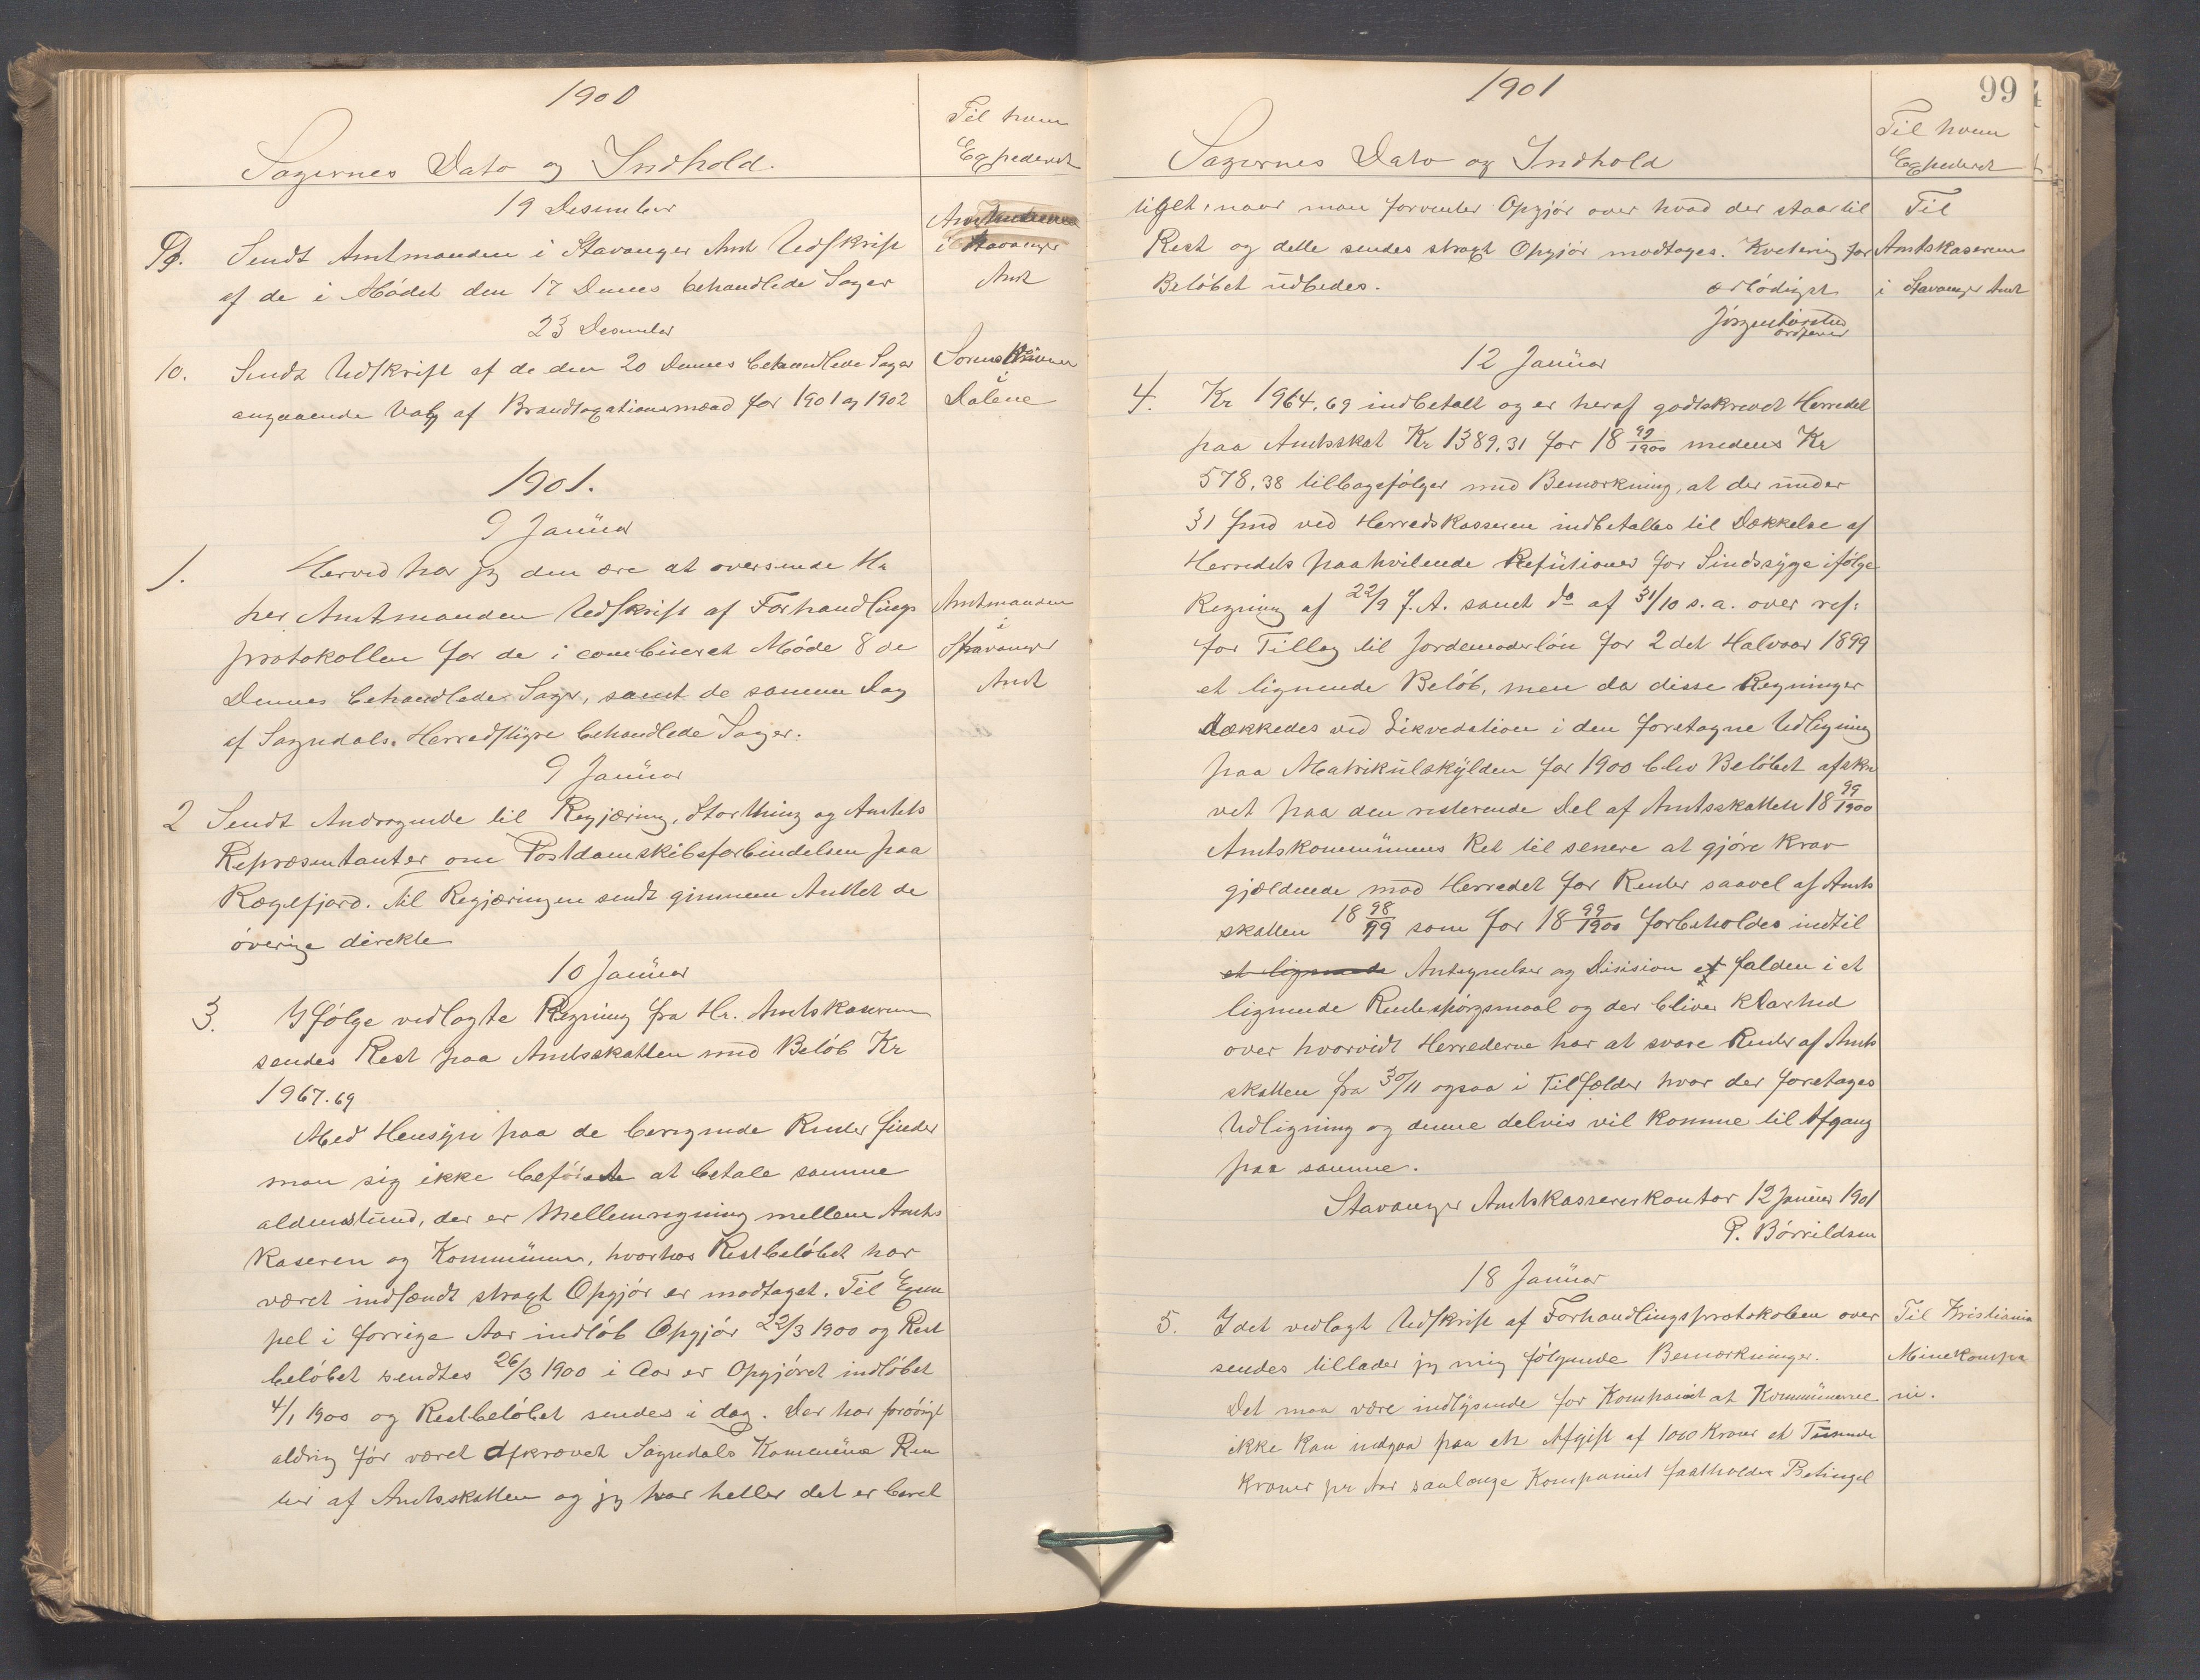 1900
Sagernes Dato og Indhold.
Til hvem
Expederet
19 Desember
9. Sendt Amtmanden i Stavanger Amt Udskrift
af de i Mödet den 17 Dennes behandlede Sager
Amtmanden
i Stavanger
Amt
23 Desember
10. Sendt Udskrift af de den 20 Dennes behandlede Sager
angaaende Valg af Brandtaxationsmænd for 1901 og 1902
Sorenskriveren
i
Dalene
1901.
9 Januar
1. Herved har jeg den ære at oversende Hr
her Amtmanden Udskrift af Forhandlings
protokollen for de i combineret Möde 8 de
Dennes behandlede Sager, samt de samme Dag
af Sogndals Herredstyre behandlede Sager.
Amtmanden
i
Stavanger
Amt
9 Januar
2 Sendt Andragende til Regjæring, Storthing og Amtets
Repræsentanter om Postdamskibsforbindelsen paa
Rægefjord. Til Regjæringen sendt gjennem Amtet de
överige direkte
10 Januar
3. Ifölge vedlagte Regning fra Hr. Amtskaseren
sendes Rest paa Amtsskatten med Belöb Kr
1967.69
Med Hensyn paa de beregnede Renter finder
man sig ikke beföiet at betale samme
aldenstund, der er Mellemregning mellem Amts
kaseren og Kommunen, hvorhos Restbelöbet har
været indsendt straxt Opgjör er modtaget. Til Exem
pel i forrige Aar indlöb Opgjör 22/3 1900 og Rest
belöbet sendtes 26/3 1900 i Aar er Opgjöret indlöbet
4/1 1900 og Restbelöbet sendes i dag. Der har forövrigt
aldrig för været afkrævet Sogndals Kommune Ren
ter af Amtsskatten og jeg har heller det er beret
1901
99
Sagernes Dato og Indhold
Til hvem
Expederet
tiget, naar man forventer Opgjör over hvad der staar til
Rest og dette sendes straxt Opgjör modtages. Kvitering for
Belöbet udbedes.
Til
Amtskaseren
i Stavanger Amt
ærbödigst
ordförer
12 Januar
4. Kr 1964,69 indbetalt og er heraf godtskrevet Herredet
paa Amtsskat Kr 1389.31 for 18 99/1900 medens Kr
578.38 tilbagefölger med Bemærkning, at der under
31 fmd ved Herredskasseren indbetaltes til Dækkelse af
Herredets paahvilende Refutioner for Sindssyge ifölge
Regning af 22/9 f.A. samt do af 31/10 s.a. over ref:
for Tillæg til Jordemoderlön for 2det Halvaar 1899
et lignende Belöb, men da disse Regninger
dækkedes ved Likvedation i den foretagne Udligning
paa Matrikulskylden for 1900 blev Belöbet afskre
vet paa den resterende Del af Amtsskatten 18 99/1900
Amtskommunens Ret til senere at gjöre Krav
gjældende mod Herredet for Renter saavel af Amts
skatten 18 98/99 som for 18 99/1900 forbeholdes indtil
et lignende Antegnelser og Disision er falden i et
lignende Rentespörgsmaal og der bliver klarhed
over hvorvidt Herrederne har at svare Renter af Amts
skatten fra 30/11 ogsaa i Tilfælder hvor der foretages
Udligning og denne delvis vil komme til Afgang
paa samme.
Stavanger Amtskassererkontor 12 Januar 1901
P. Börrildsen
18 Januar
5. Idet vedlagt Udskrift af Forhandlingsprotokolen over
sendes tillader jeg mig fölgende Bemærkninger.
Det maa være indlysende for Kompaniet at Kommunerne
ikke kan indgaa paa en Afgift af 1000 Kroner et Tusende
kroner pr Aar saalænge Kompaniet fastholder Betingel
Til Kristiania
Minekompa
ni.